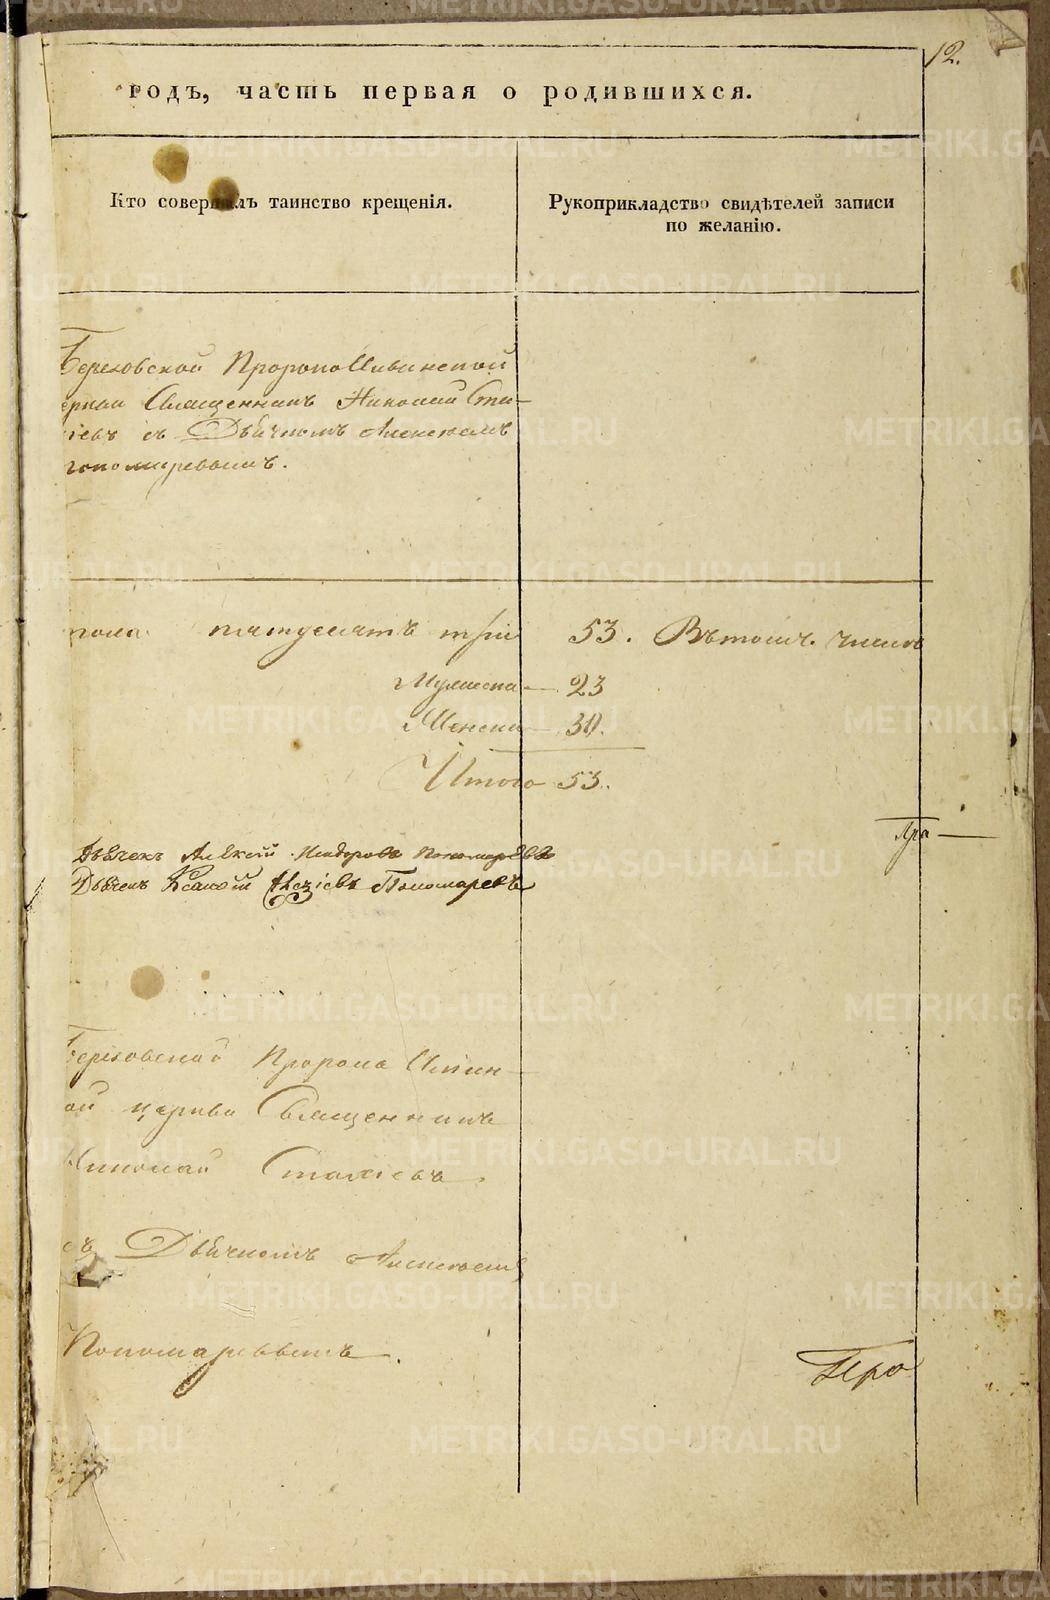 12.
годъ, часть первая о родившихся.
Кто совершалъ таинство крещенія.
Рукоприкладство свидѣтелей записи
по желанію.
Березовской Пророко Ильинской
церкви Священникъ Николай Ста-
съ Дьячкомъ Алексѣемъ
Пономаревымъ.
пола пятьдесятъ три 53. Въ томъ числѣ
Мужеска — 23
Женска — 30.
Итого 53.
Пра
Дьячекъ Алексѣй Пономаревъ
Дьячекъ Пономаревъ
Березовской Пророка Ильин-
ой церкви Священникъ
Николай
съ Дьячкомъ Алексѣемъ
Пономаревымъ.
Про
METRIKI.GASO-URAL.RU